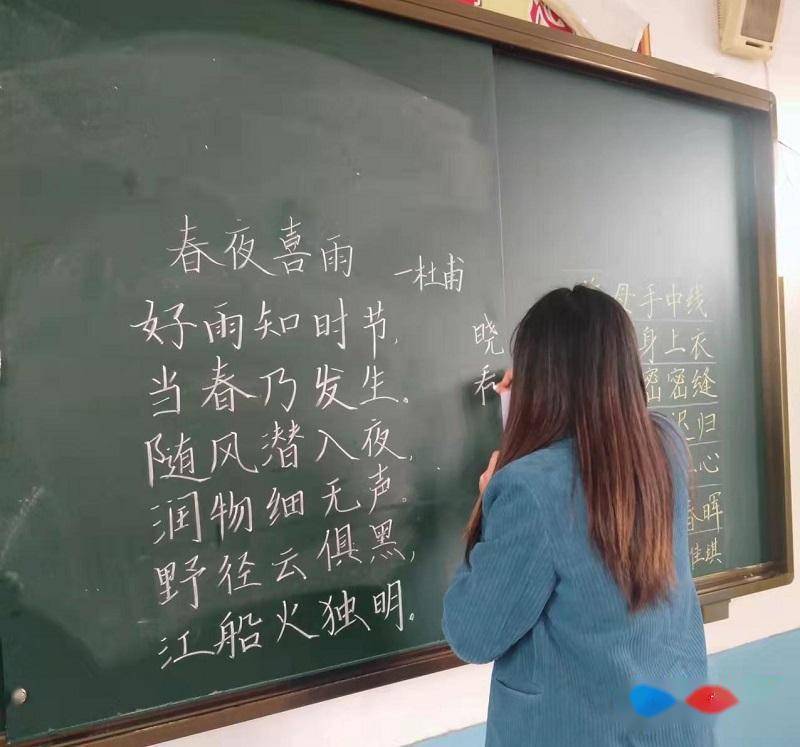 春夜喜雨
—杜甫
好雨知时节,
当春乃发生。
随风潜入夜,
润物细无声。
野径云俱黑,
江船火独明。
晓
看
母手中线
身上衣
密密缝
迟归
心
春晖